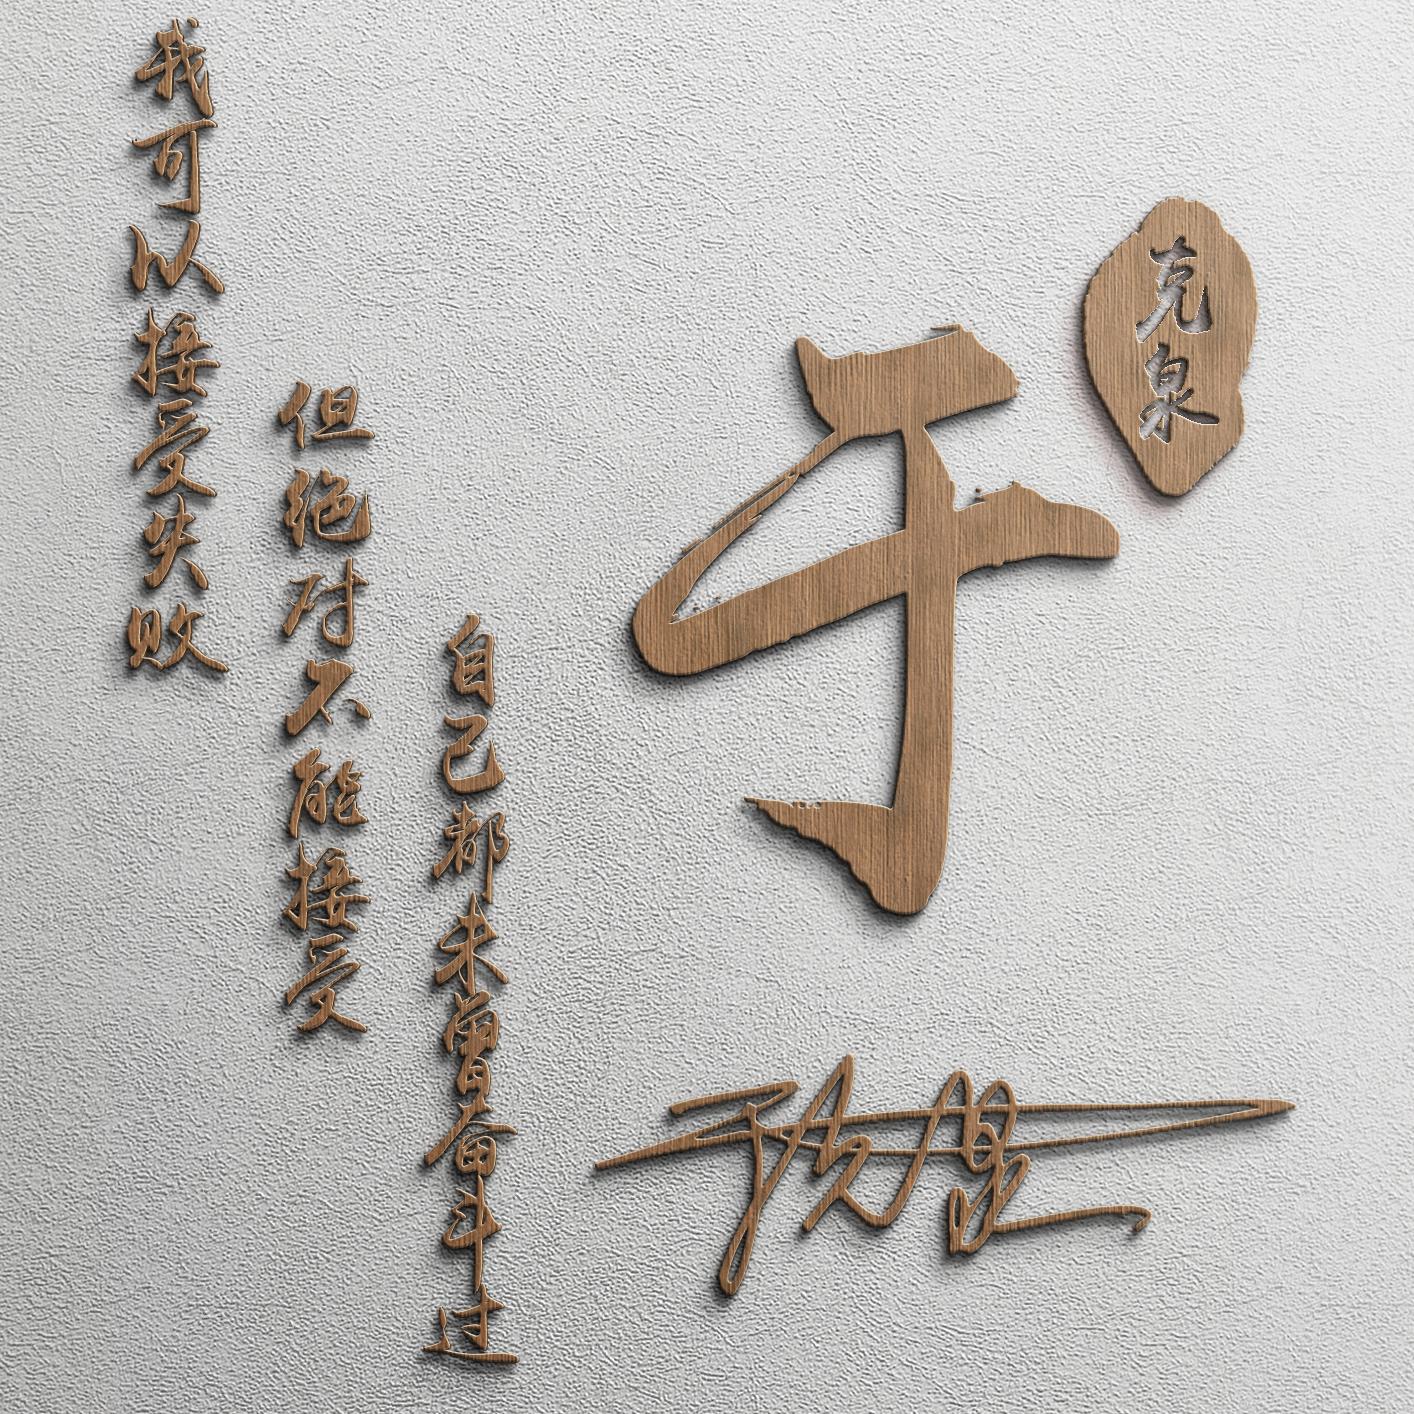 我可以接受失败
但绝对不能接受
自己都未曾奋斗过
于
克泉